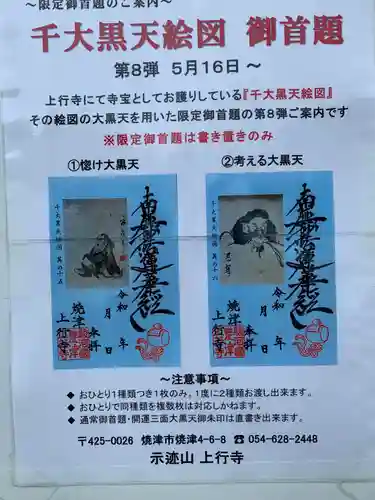 ～限定御首題のご案内～
千大黒天絵図 御首題
第8弾 5月16日～
上行寺にて寺宝としてお護りしている『千大黒天絵図』
その絵図の大黒天を用いた限定御首題の第8弾ご案内です
※限定御首題は書き置きのみ
①惚け大黒天
②考える大黒天
千大黒天絵図 其の十五
南無妙法蓮華経
令和 年 月 日
焼津 奉拝
上行寺
千大黒天絵図 其の十六
南無妙法蓮華経
令和 年 月 日
焼津 奉拝
上行寺
～注意事項～
◆ おひとり1種類つき1枚のみ。1度に2種類お渡し出来ます。
◆ おひとりで同種類を複数枚は対応しかねます。
◆ 通常御首題・開運三面大黒天御朱印は直書き出来ます。
〒425-0026 焼津市焼津4-6-8 ☎054-628-2448
示迹山 上行寺